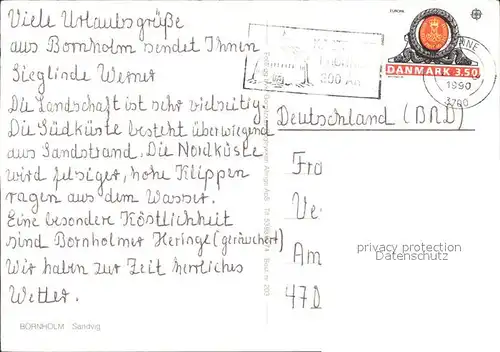 Viele Urlaubsgrüße
aus Bornholm sendet Ihnen
Sieglinde Werner
Die Landschaft ist sehr vielseitig.
Die Südküste besteht überwiegend
aus Sandstrand. Die Nordküste
wird felsiger, hohe Klippen
ragen aus dem Wasser.
Eine besondere Köstlichkeit
sind Bornholmer Heringe (geräuchert)
Wir haben zur Zeit herrliches
Wetter.
BORNHOLM Sandvig
EUROPA
DANMARK 3.50
1990
3700
300 År
Deutschland (BRD)
Fra
Ve
Am
47D
privacy protection
Datenschutz